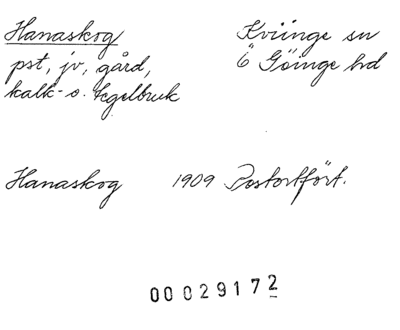 Hanaskog Kviinge sn
pst, jv, gård, Ö Göinge hd
kalk- o. tegelbruk
Hanaskog 1909 Postortfört.
00029172